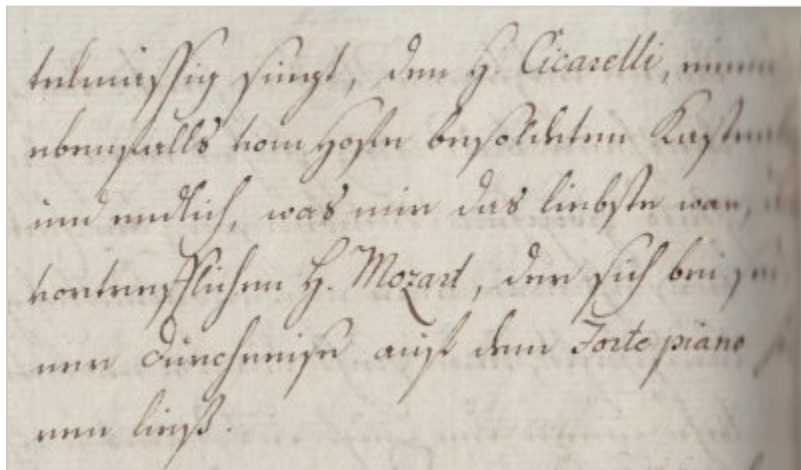 telmässig singt, den H. Cicarelli, einen
ebenfalls vom Hofe besoldeten Kastra
und endlich, was mir das liebste war,
vortrefflichen H. Mozart, der sich bei sei
ner Durchreise auf dem Forte piano
nen ließ.